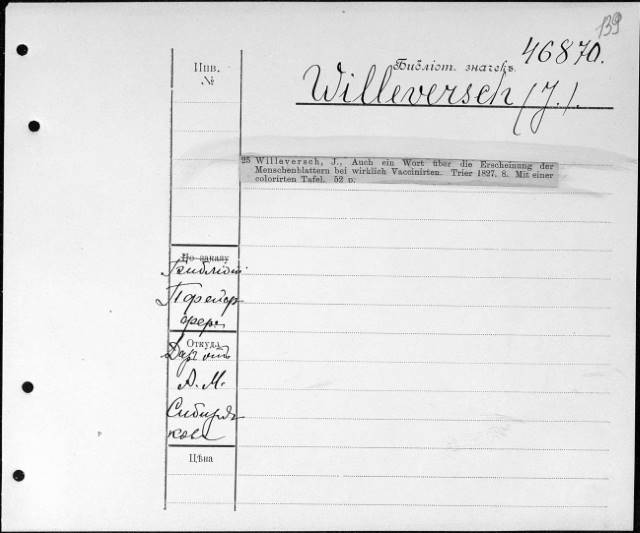 139
46870.
Инв.
№
Библіот. значекъ.
Willeversch (J.).
25 Willeversch, J., Auch ein Wort über die Erscheinung der
Menschenblattern bei wirklich Vaccinirten. Trier 1827. 8. Mit einer
colorirten Tafel. 52 p.
По заказу
Библіот.
Пфейф
фера
Откуда
Даръ отъ
А. М.
Сибиря
кова
Цѣна